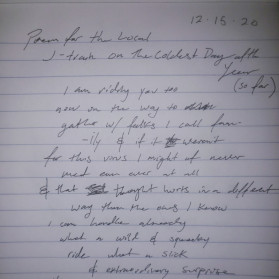 12-15-20
Poem for the Local
J-train on the Coldest Day of the
Year
(so far)
I am riding you too
now on the way to
gather w/ folks I call fam-
-ily & if it weren't
for this virus I might of never
met em ever at all
& that thought hurts in a different
way than the ones I know
I can handle already
what a wild of
ride what a slick
of extraordinary surprise